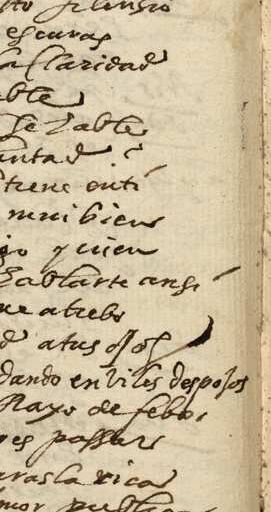 sto silensio
escuras
la claridad
able
se hable
untad ?
tiene en ti
mui bien
go quien
hablarte ansi
me atrebo
d a tus ojos
dando en biles despojos
Rayo de febo.
es passar
aras la rica
mor